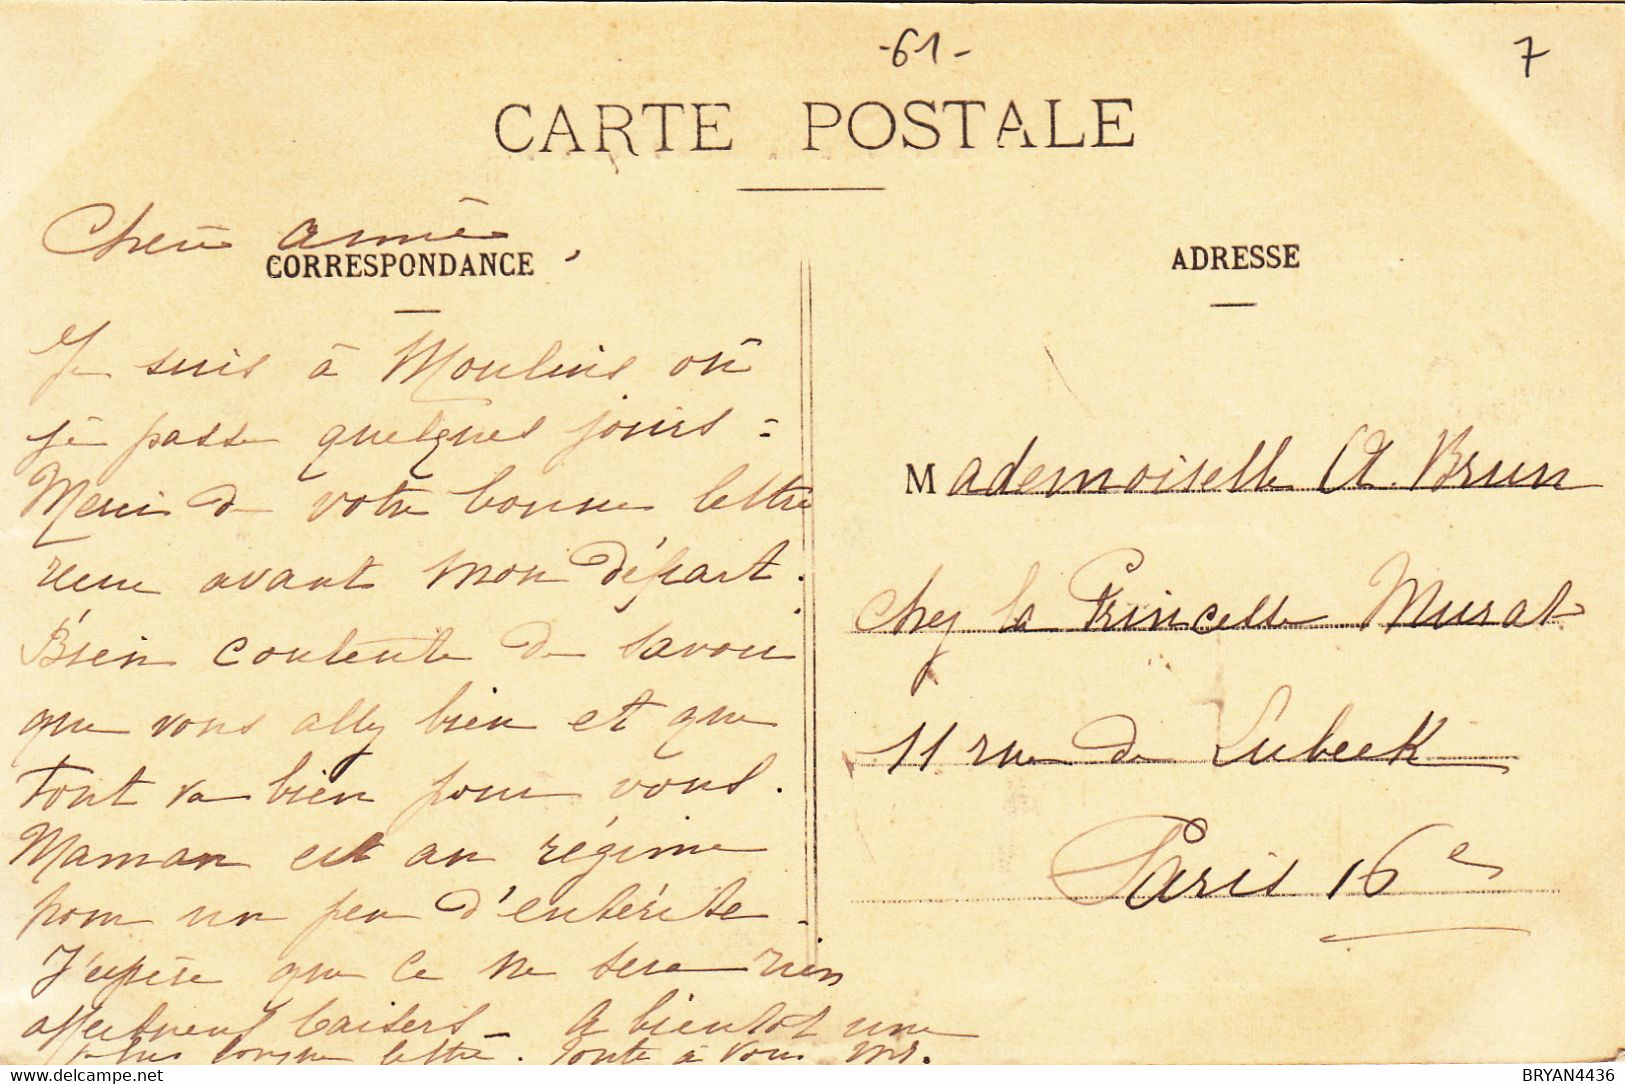 -61-
7
CARTE POSTALE
Chère Aimée,
CORRESPONDANCE
Je suis à Moulins où
je passe quelques jours =
Merci de votre bonne lettre
reçue avant mon départ.
Bien contente de savoir
que vous allez bien et que
tout va bien pour vous.
Maman est au régime
pour un peu d'entérite.
J'espère que ce ne sera rien
affectueux baisers - A bientôt une
plus longue lettre. Toute à vous
ADRESSE
Mademoiselle A. Brun
chez la Princesse Murat
11 rue de Lubeck
Paris 16e
BRYAN4436
delcampe.net